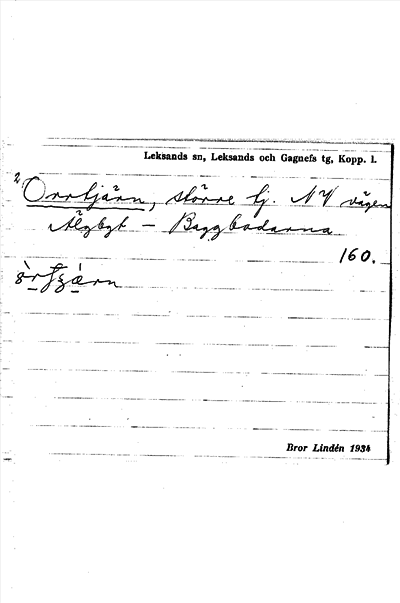 Leksands sn, Leksands och Gagnefs tg, Kopp. l.
2 Orrtjärn, större tj. NV vägen
Älgbgt — Baggbodarna
160.
Bror Lindén 1934